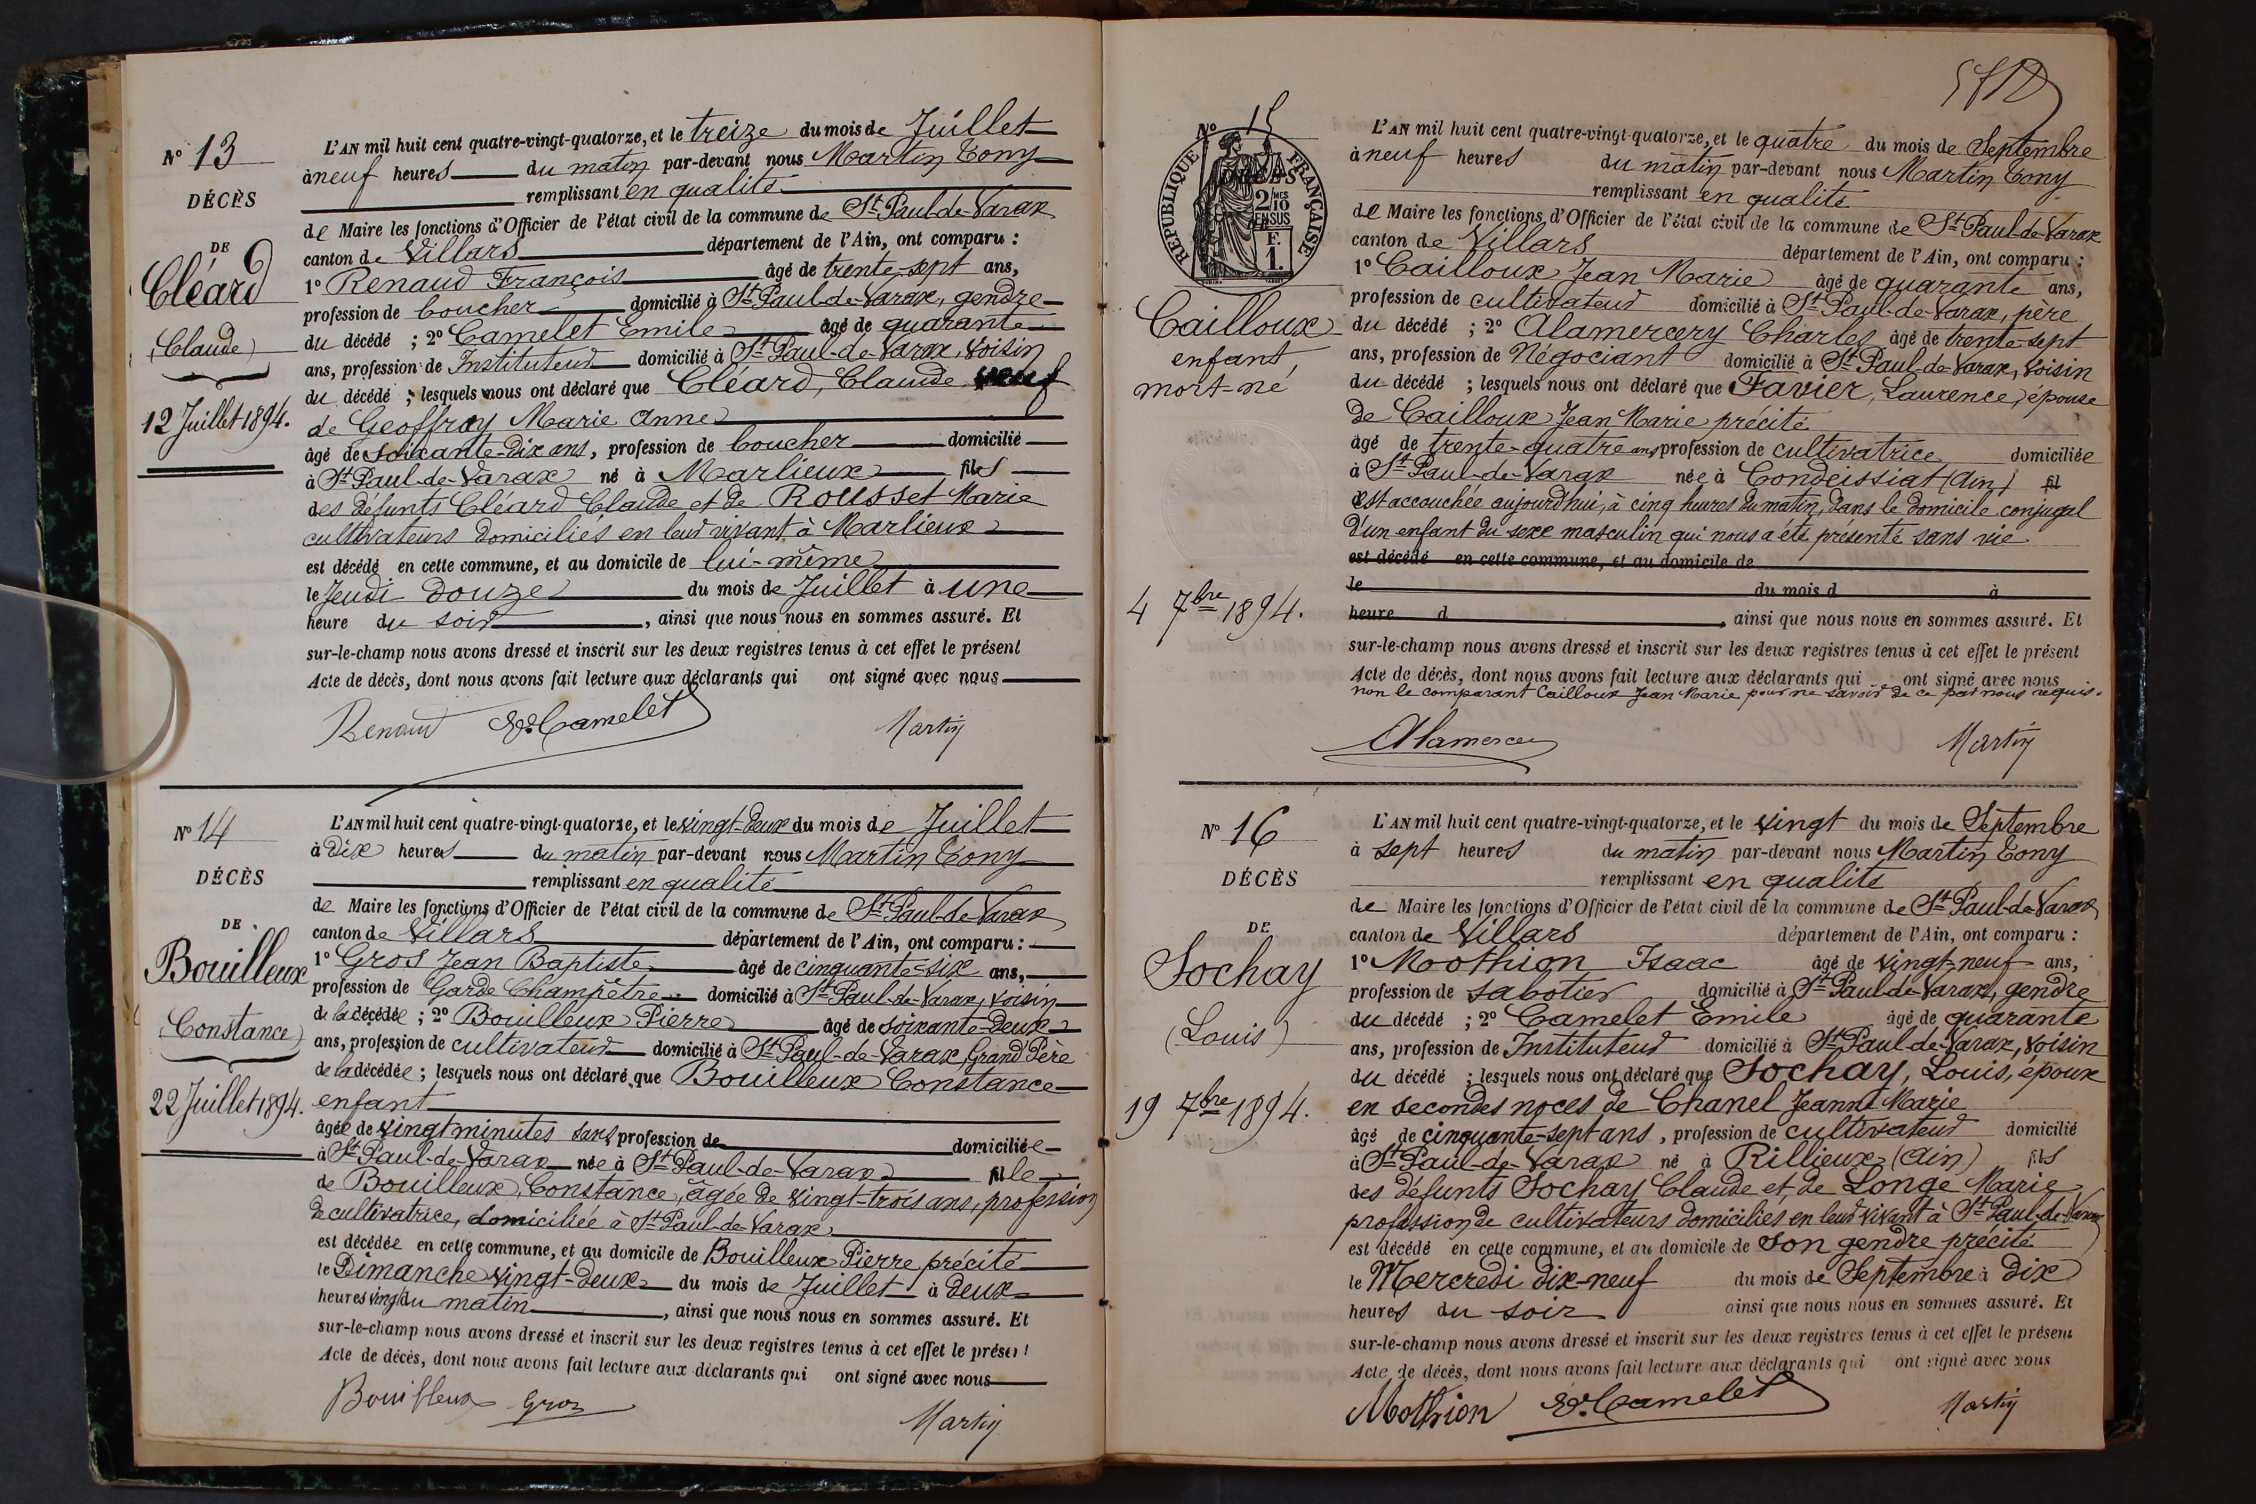 N° 13
DÉCÈS
DE
Cléard
(Claude)
12 Juillet 1894.
L'AN mil huit cent quatre-vingt-quatorze, et le treize du mois de Juillet
à neuf heures du matin par-devant nous Martin Tony
remplissant en qualité
de Maire les fonctions d'Officier de l'état civil de la commune de St Paul-de-Varax
canton de Villars département de l'Ain, ont comparu :
1° Renaud François âgé de trente-sept ans,
profession de boucher domicilié à St Paul-de-Varax, gendre
du décédé ; 2° Camelet Emile âgé de quarante
ans, profession de Instituteur domicilié à St Paul-de-Varax, voisin
du décédé ; lesquels nous ont déclaré que Cléard, Claude veuf
de Geoffray Marie Anne
âgé de soixante-dix ans, profession de boucher domicilié
à St Paul-de-Varax né à Marlieux fils
des défunts Cléard Claude et de Rousset Marie
cultivateurs domiciliés en leur vivant à Marlieux
est décédé en cette commune, et au domicile de lui-même
le Jeudi douze du mois de Juillet à une
heure du soir, ainsi que nous nous en sommes assuré. Et
sur-le-champ nous avons dressé et inscrit sur les deux registres tenus à cet effet le présent
Acte de décès, dont nous avons fait lecture aux déclarants qui ont signé avec nous
Renaud Camelet Martin
N° 14
DÉCÈS
DE
Bouilleux
(Constance)
22 Juillet 1894.
L'AN mil huit cent quatre-vingt-quatorze, et le vingt-deux du mois de Juillet
à dix heures du matin par-devant nous Martin Tony
remplissant en qualité
de Maire les fonctions d'Officier de l'état civil de la commune de St Paul-de-Varax
canton de Villars département de l'Ain, ont comparu :
1° Gros Jean Baptiste âgé de cinquante-six ans,
profession de Garde Champêtre domicilié à St Paul-de-Varax, voisin
de la décédée ; 2° Bouilleux Pierre âgé de soixante-deux
ans, profession de cultivateur domicilié à St Paul-de-Varax, Grand Père
de la décédée ; lesquels nous ont déclaré que Bouilleux Constance
enfant
âgée de vingt minutes sans profession de domiciliée
à St Paul-de-Varax née à St Paul-de-Varax fille
de Bouilleux, Constance, âgée de vingt-trois ans, profession
de cultivatrice, domiciliée à St Paul-de-Varax
est décédée en cette commune, et au domicile de Bouilleux Pierre précité
le Dimanche vingt-deux du mois de Juillet à deux
heures vingt du matin, ainsi que nous nous en sommes assuré. Et
sur-le-champ nous avons dressé et inscrit sur les deux registres tenus à cet effet le présent
Acte de décès, dont nous avons fait lecture aux déclarants qui ont signé avec nous
Bouilleux Gros
Martin
N° 15
REPUBLIQUE FRANÇAISE
DÉCÈS
2/10 MES
EN SUS
F.
1.
Cailloux
enfant
mort-né
4 7bre 1894.
L'AN mil huit cent quatre-vingt-quatorze, et le quatre du mois de Septembre
à neuf heures du matin par-devant nous Martin Tony
remplissant en qualité
de Maire les fonctions d'Officier de l'état civil de la commune de St Paul-de-Varax
canton de Villars département de l'Ain, ont comparu :
1° Cailloux Jean Marie âgé de quarante ans,
profession de cultivateur domicilié à St Paul-de-Varax, père
du décédé ; 2° Alamercery Charles âgé de trente-sept
ans, profession de Négociant domicilié à St Paul-de-Varax, voisin
du décédé ; lesquels nous ont déclaré que Favier, Laurence, épouse
de Cailloux Jean Marie précité
âgé de trente-quatre ans profession de cultivatrice domiciliée
à St Paul-de-Varax née à Condeissiat (Ain) fil
est accouchée aujourd'hui, à cinq heures du matin, dans le domicile conjugal
d'un enfant du sexe masculin qui nous a été présenté sans vie
est décédé en cette commune, et au domicile de
le du mois d à
heure d, ainsi que nous nous en sommes assuré. Et
sur-le-champ nous avons dressé et inscrit sur les deux registres tenus à cet effet le présent
Acte de décès, dont nous avons fait lecture aux déclarants qui ont signé avec nous
non le comparant Cailloux Jean Marie pour ne savoir de ce par nous requis.
Alamercery Martin
N° 16
DÉCÈS
DE
Sochay
(Louis)
19 7bre 1894.
L'AN mil huit cent quatre-vingt-quatorze, et le vingt du mois de Septembre
à sept heures du matin par-devant nous Martin Tony
remplissant en qualité
de Maire les fonctions d'Officier de l'état civil de la commune de St Paul-de-Varax
canton de Villars département de l'Ain, ont comparu :
1° Moothion Isaac âgé de vingt-neuf ans,
profession de sabotier domicilié à St Paul-de-Varax, gendre
du décédé ; 2° Camelet Emile âgé de quarante
ans, profession de Instituteur domicilié à St Paul-de-Varax, voisin
du décédé ; lesquels nous ont déclaré que Sochay, Louis, époux
en secondes noces de Chanel Jeanne Marie
âgé de cinquante-sept ans, profession de cultivateur domicilié
à St Paul-de-Varax né à Rillieux (Ain) fils
des défunts Sochay Claude et de Longe Marie
profession de cultivateurs domiciliés en leur vivant à St Paul-de-Varax
est décédé en cette commune, et au domicile de son gendre précité
le Mercredi dix-neuf du mois de Septembre à dix
heures du soir ainsi que nous nous en sommes assuré. Et
sur-le-champ nous avons dressé et inscrit sur les deux registres tenus à cet effet le présent
Acte de décès, dont nous avons fait lecture aux déclarants qui ont signé avec nous
Mothion Camelet Martin